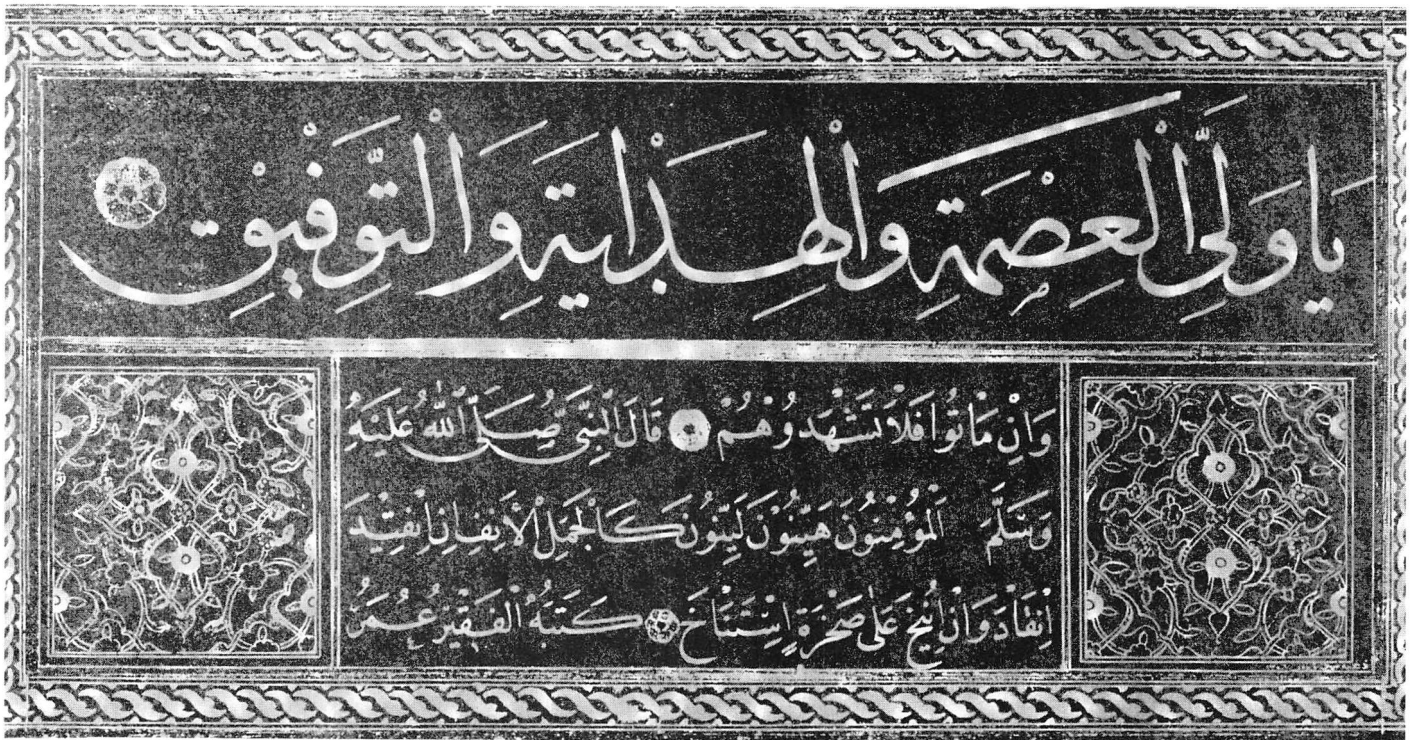 يَا وَلِيَّ الْعِصْمَةِ وَالْهِدَايَةِ وَالتَّوْفِيْقِ
وَاِنْ مَاتُوا فَلَا تَشْهَدُوهُمْ قَالَ النَّبِيُّ صَلَّى اللّٰهُ عَلَيْهِ
وَسَلَّمَ اَلْمُؤْمِنُونَ هَيِّنُونَ لَيِّنُونَ كَالْجَمَلِ الْاَنِفِ اِنِ انْقِيْدَ
اِنْقَادَ وَاِنْ اُنِيْخَ عَلٰى صَخْرَةٍ اِسْتَنَاخَ كَتَبَهُ الْفَقِيْرُ عُمَرُ